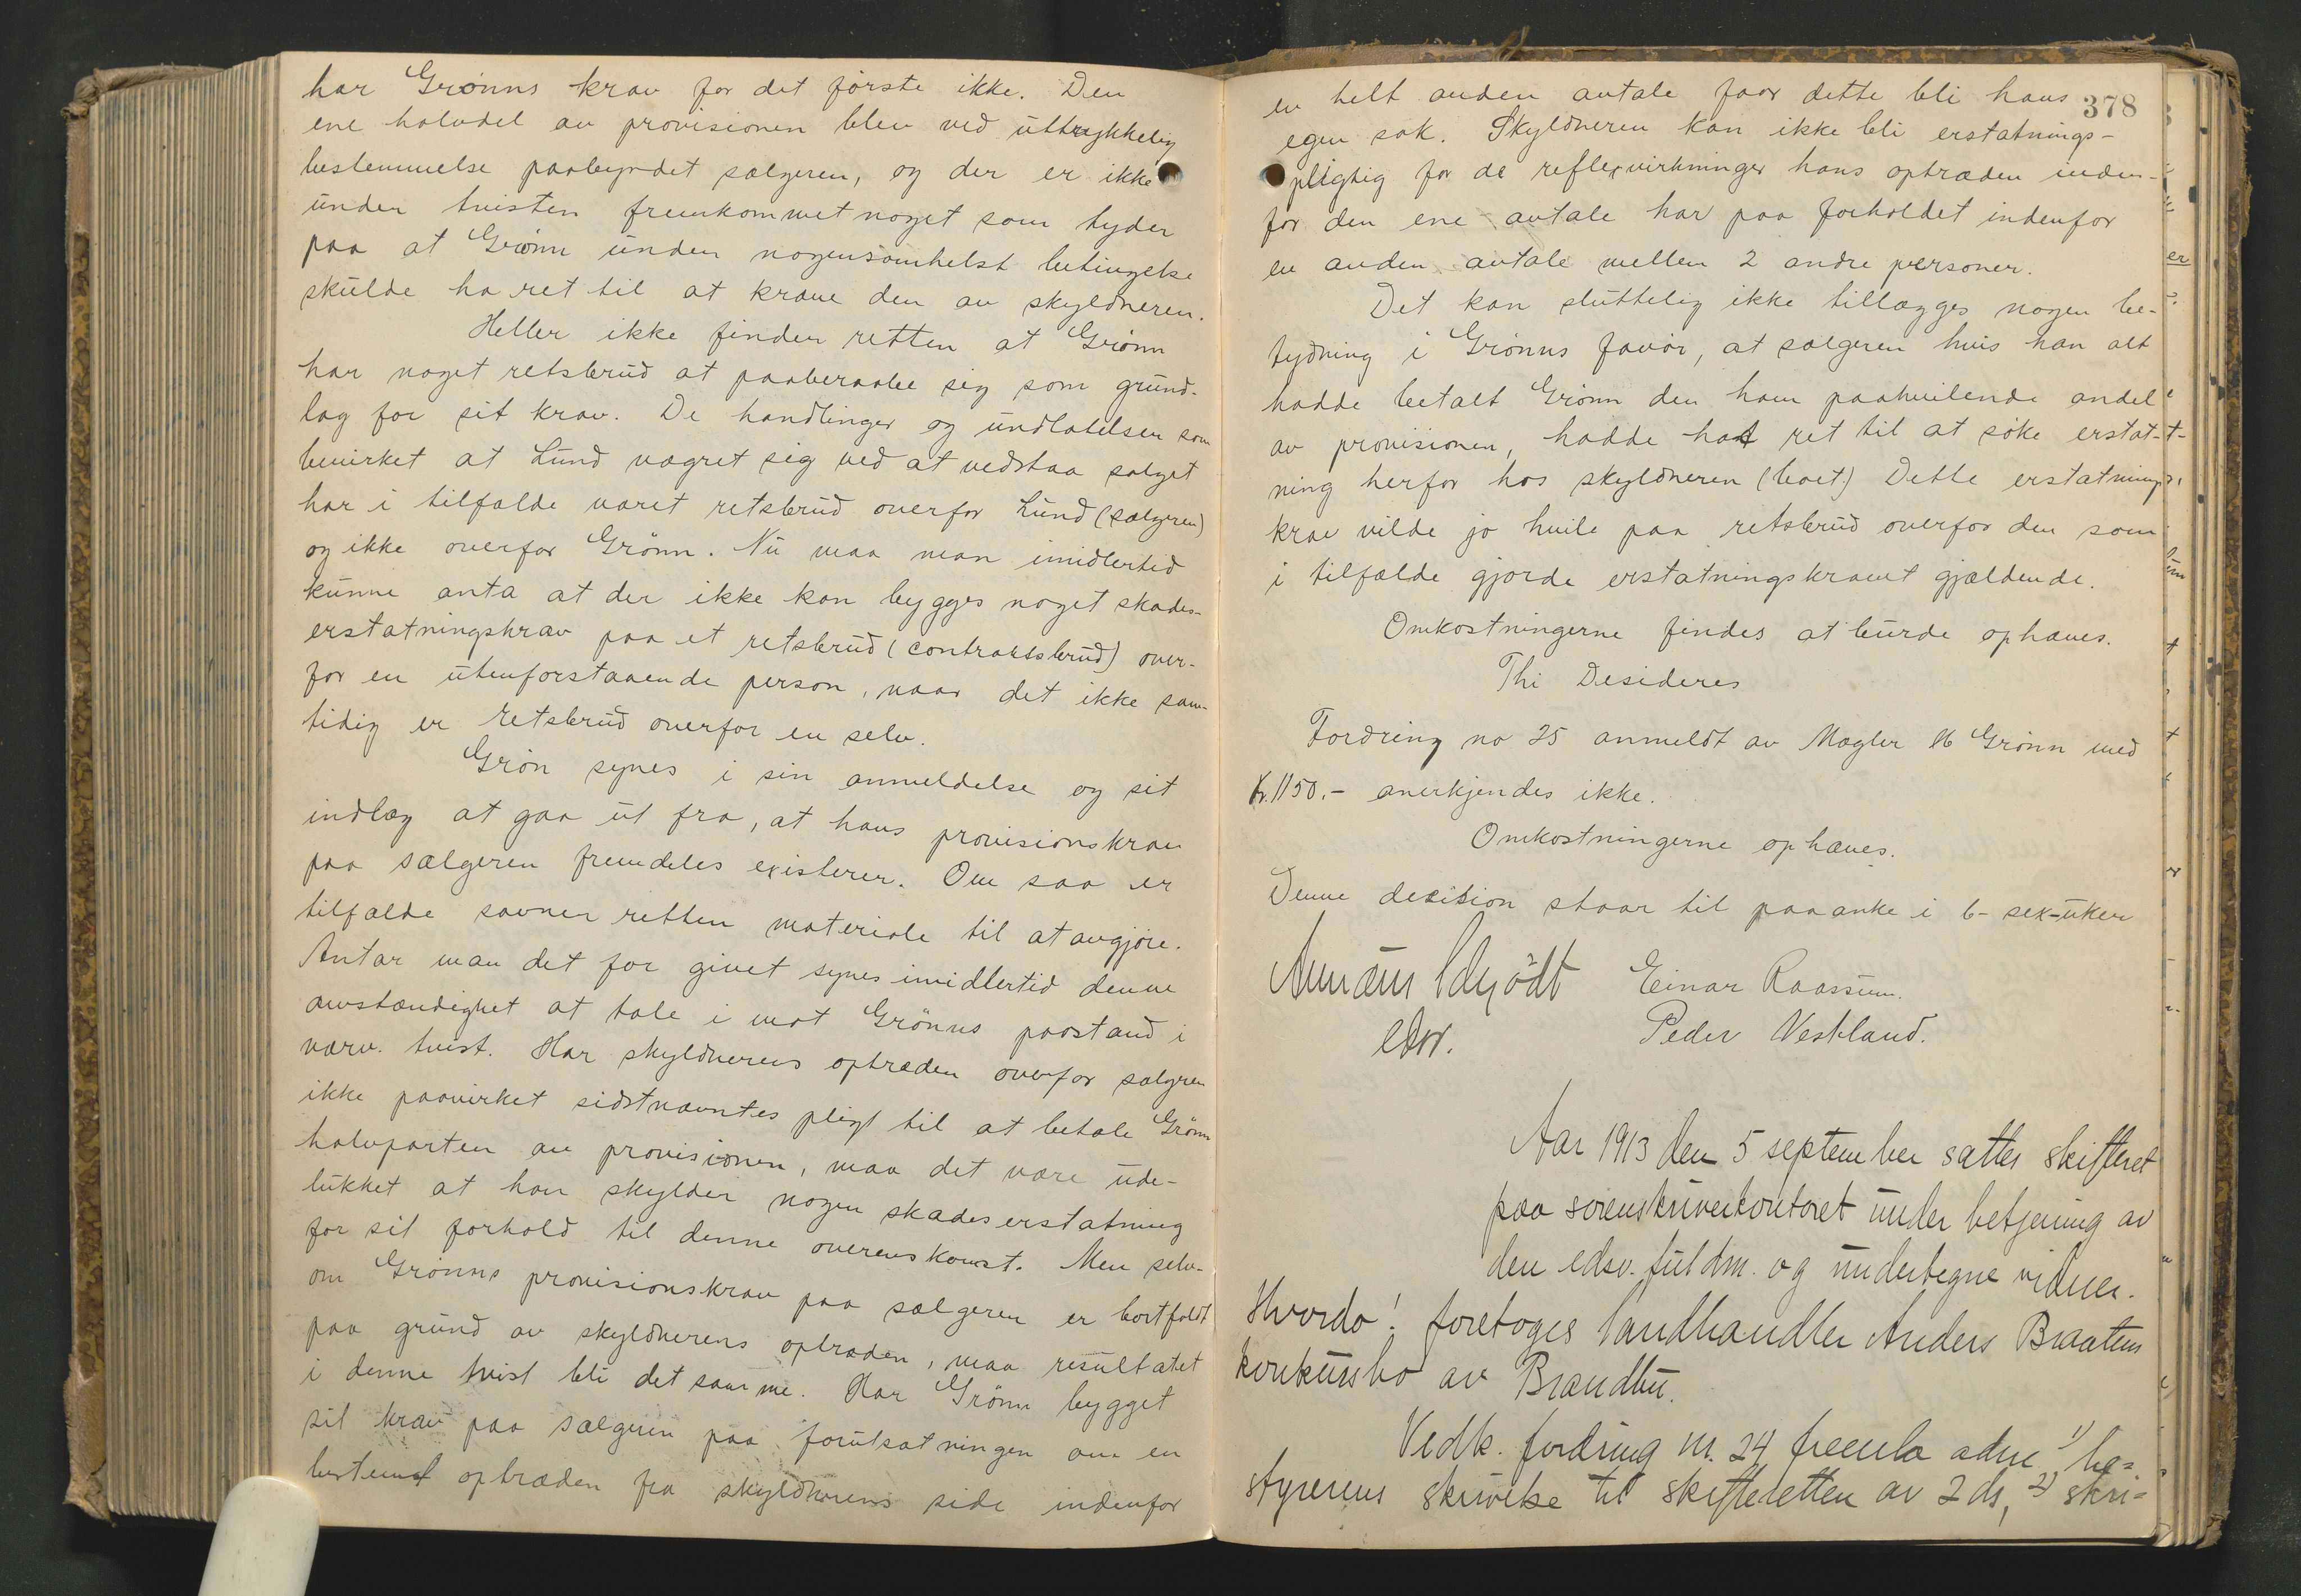 har Grönns krav for det første ikke. Den
ene halvdel av provisionen blev ved uttrykkelig
bestemmelse paabyrdet sælgeren, og der er ikke
under tvisten fremkommet noget som tyder
paa at Grönn under nogensomhelst betingelse
skulde ha ret til at kræve den av skyldneren.
Heller ikke finder retten at Grönn
har noget retsbrud at paaberaabe sig som grund-
lag for sit krav. De handlinger og undlatelser som
bevirket at Lund vægret sig ved at vedstaa salget
har i tilfælde været retsbrud overfor Lund (sælgeren)
og ikke overfor Grönn. Nu maa man imidlertid
kunne anta at der ikke kan bygges noget skades-
erstatningskrav paa et retsbrud (contraktsbrud) over-
for en utenforstaaende person, naar det ikke sam-
tidig er retsbrud overfor en selv.
Grön synes i sin anmeldelse og sit
indlæg at gaa ut fra, at hans provisionskrav
paa sælgeren fremdeles existerer. Om saa er
tilfælde savner retten materiale til at avgjöre.
Antar man det for givet synes imidlertid denne
omstændighet at tale i mot Grönns paastand i
nærv. tvist. Har skyldnerens optræden overfor sælgren
ikke paavirket sidstnævntes pligt til at betale Grönn
halvparten av provisionen, maa det være ude-
lukket at han skylder nogen skadeserstatning
for sit forhold til denne overenskomst. Men selv-
om Grönns provisionskrav paa sælgeren er bortfaldt
paa grund av skyldnerens optræden, maa resultatet
i denne tvist bli det samme. Har Grönn bygget
sit krav paa sælgeren paa forutsatningen om en
bestemt optræden fra skyldnerens side indenfor
378
en helt anden avtale faar dette bli hans
egen sak. Skyldneren kan ikke bli erstatnings-
pligtig for de reflexvirkninger hans optræden inden-
for den ene avtale har paa forholdet indenfor
en anden avtale mellem 2 andre personer.
Det kan sluttelig ikke tillægges nogen be-
tydning i Grönns favör, at sælgeren hvis han alt
hadde betalt Grönn den ham paahvilende andel
av provisionen, hadde hat ret til at söke erstat-
ning herfor hos skyldneren (boet.) Dette erstatnings
krav vilde jo hvile paa retsbrud overfor den som
i tilfælde gjorde erstatningskravet gjældende.
Omkostningerne findes at burde ophæves.
Thi Desideres
Fordring no 25 anmeldt av Mægler Grönn med
Kr. 1150.- anerkjendes ikke.
Omkostningerne ophæves.
Denne decision staar til paaanke i 6- sex-uker
Schjödt Einar Raassum.
Peder Vestland.
Aar 1913 den 5 september sattes skifteret
paa sorenskriverkontoret under betjening av
den edsv. fuldm. og undertegne vidner.
Hvorda! foretoges landhandler Anders Braatens
konkursbo av Brandbu.
Vedk. fordring nr. 24 fremla adm 1) be=
styrerens skrivelse til skifteretten av 2 ds, 2) skri=